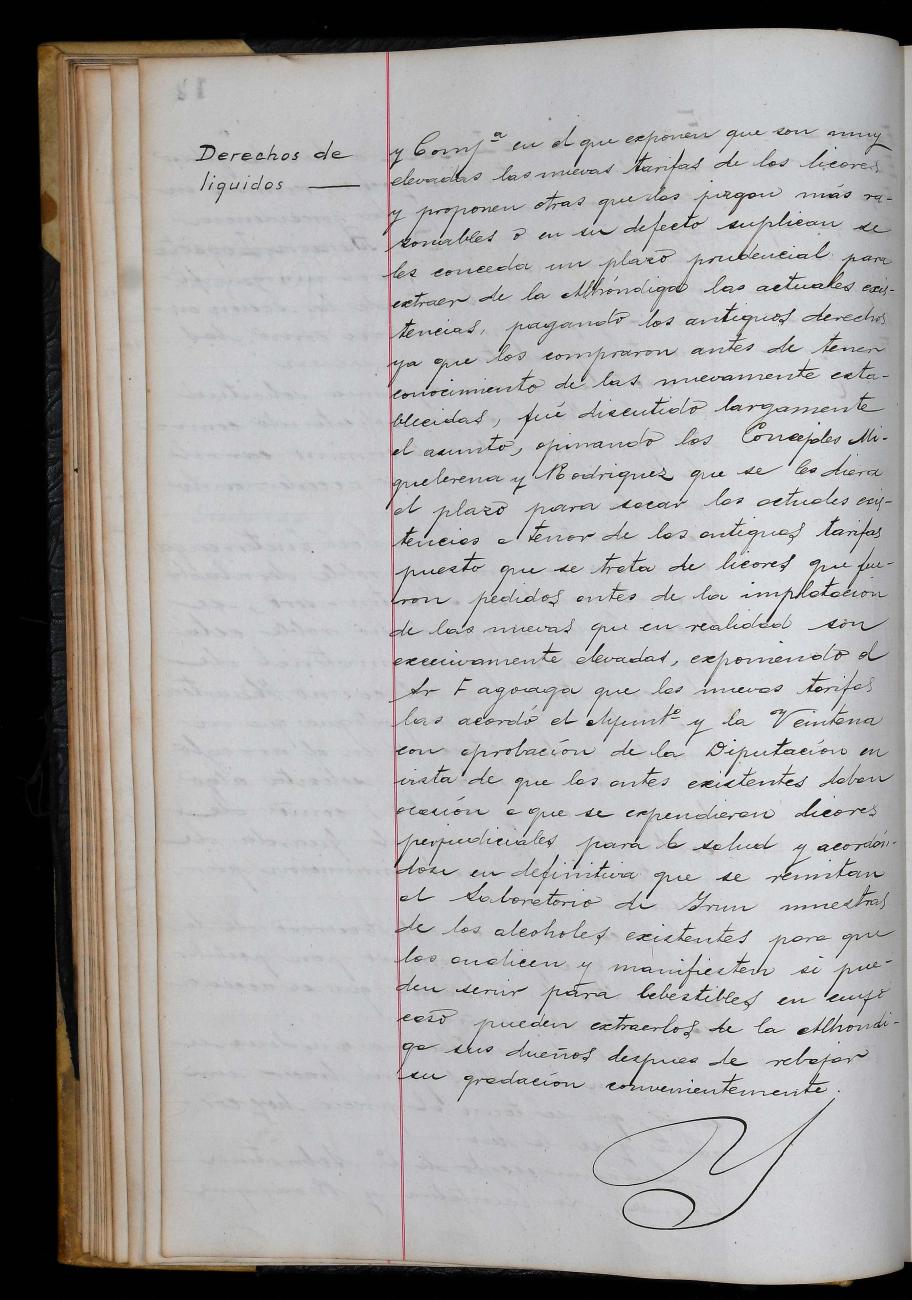 Derechos de
liquidos —
y Comp.ª en el que exponen que son muy
elevadas las nuevas tarifas de los licores
y proponen otras que las juzgan más ra-
zonables ó en su defecto suplican se
les conceda un plazo prudencial para
extraer de la Alhóndiga las actuales exis-
tencias, pagando los antiguos derechos
ya que los compraron antes de tener
conocimiento de las nuevamente esta-
blecidas, fué discutido largamente
el asunto, opinando los Concejales Mi-
quelerena y Rodriguez que se les diera
el plazo para sacar las actuales exis-
tencias a tenor de las antiguas tarifas
puesto que se trata de licores que fue-
ron pedidos antes de la implatación
de las nuevas que en realidad son
excesivamente elevadas, exponiendo el
Sr Fagoaga que las nuevas tarifas
las acordó el Ayunt.º y la Veintena
con aprobación de la Diputación en
vista de que las antes existentes daban
ocasión a que se expendieran licores
perjudiciales para la salud y acordán-
dose en definitiva que se remitan
al Laboratorio de Irun muestras
de los alcoholes existentes para que
los analicen y manifiesten si pue-
den servir para bebestibles en cuyo
caso pueden extraerlos de la Alhondi-
ga sus dueños despues de rebajar
su gradación convenientemente.